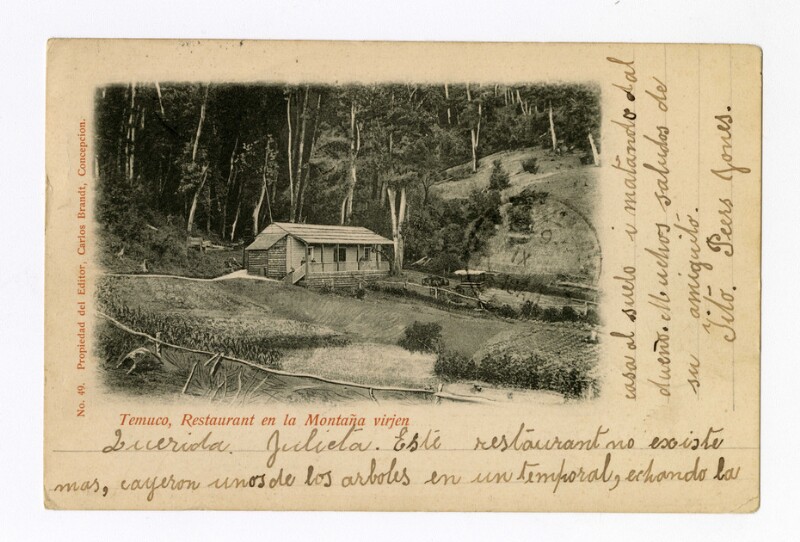 No. 49. Propiedad del Editor, Carlos Brandt, Concepcion.
Temuco, Restaurant en la Montaña virjen
Querida. Julieta. Este restaurant no existe
mas, cayeron unos de los arboles en un temporal, echando la
casa al suelo i matando dal
dueño. Muchos saludos de
su amiguito.
Tito. Peers Jones.